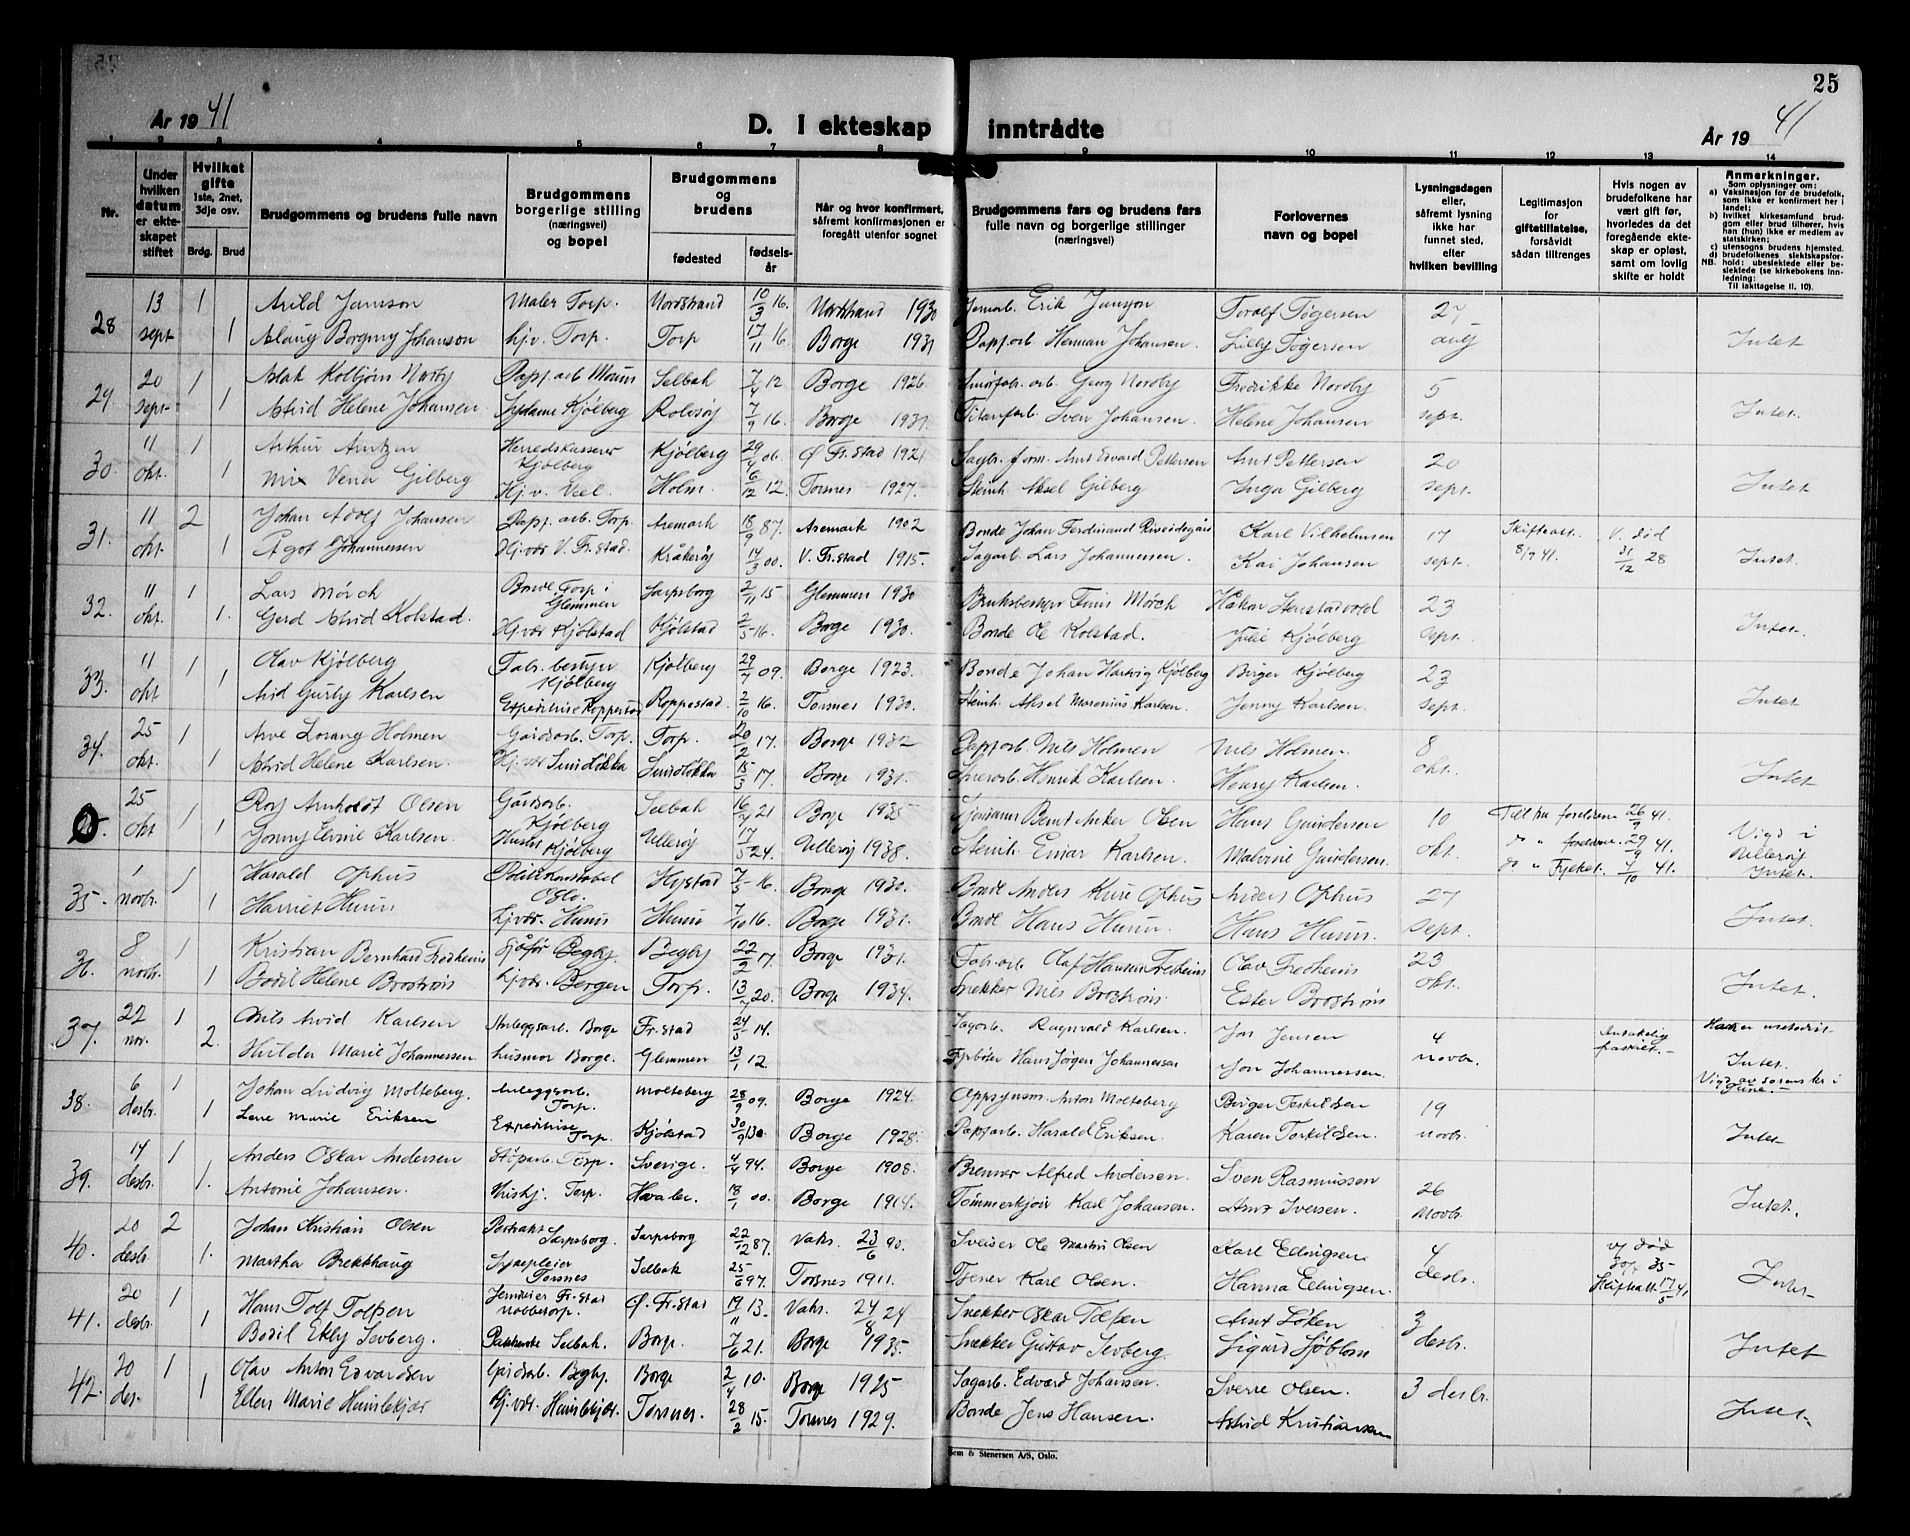 25
År 1941
D. I ekteskap inntrådte
År 1941
1 2 3 4 5 6 7 8 9 10 11 12 13 14
Nr.
Under hvilken datum er ekteskapet stiftet
Hvilket gifte 1ste, 2net, 3dje osv.
Brdg. Brud
Brudgommens og brudens fulle navn
Brudgommens borgerlige stilling (næringsvei) og bopel
Brudgommens og brudens
fødested
fødselsår
Når og hvor konfirmert, såfremt konfirmasjonen er foregått utenfor sognet
Brudgommens fars og brudens fars fulle navn og borgerlige stillinger (næringsvei)
Forlovernes navn og bopel
Lysningsdagen eller, såfremt lysning ikke har funnet sted, efter hvilken bevilling
Legitimasjon for giftetillatelse, forsåvidt sådan tiltrenges
Hvis nogen av brudefolkene har vært gift før, hvorledes da det foregående ekteskap er opløst, samt om lovlig skifte er holdt
Anmerkninger.
Som oplysninger om:
a) Vaksinasjon for de brudefolk, som ikke er konfirmert her i landet;
b) hvilket kirkesamfund brudgom eller brud tilhører, hvis han (hun) ikke er medlem av statskirken;
c) utensogns brudens hjemsted.
d) brudefolkenes slektskapsforhold: ubeslektede eller beslektede (se kirkebokens innledning: Til iakttagelse II. 10).
NB.
28 13 1 Arild Jansson Maler Torp. Nordstrand 10/3 16. Nordstrand 1930 Erik Jansson Toralf Tøgersen 27
sept 1 Aslaug Borgny Johanson hj.v. Torp. Torp 17/11 16. Borge 1931 Papp.arb. Herman Johansen. Lilly Tøgersen aug Intet
29. 20 1 Aslak Kolbjørn Nordby Papp.arb Moum Selbak 7/4 12 Borge 1926. Georg Nordby Fredrikke Nordby 5
sept. 1 Astrid Helene Johansen Sydame Kjølberg Rolvsøy 7/9 16. Borge 1931. Titanfarb. Sven Johansen. Helene Johansen sept. Intet.
30. 11 1 Arthur Arntzen Herredskasserer Kjølberg Kjølberg 29/4 06. Ø Fr.stad 1921 Sagbr. form. Arnt Edvard Pettersen Arnt Pettersen 20
okt. 1 Mix Vena Gilberg Hj.v. Væl. Holm. 6/12 12. Torsnes 1927. Steinh. Aksel Gilberg Inga Gilberg sept. Intet
31. 11 2 Johan Adolf Johansen Papp. arb. Torp. Aremark 18/9 87. Aremark 1902 Bonde Johan Ferdinand Karl Vilhelmsen 17 Skifteatt. V. død
okt. 1 Ågot Johannessen Hj.vær V. Fr.stad. Kråkerøy 14/3 00. V. Fr.stad 1915. Sagarb. Lars Johannessen. Kai Johansen sept. 8/9 41. 31/12 28 Intet.
32. 11 1 Lars Mørch Bonde. Torp i Glemmen Sarpsborg 2/11 15 Glemmen 1930 Bruksbestyrer Finn Mørch Håkon 23
okt. 1. Gerd Astrid Kolstad. Hj.vær Kjølstad Kjølstad 2/5 16. Borge 1930. Bonde Ole Kolstad. Julie Kjølberg sept. Intet.
33. 11 1 Olav Kjølberg Fabr. bestyr Kjølberg Kjølberg 29/7 09. Borge 1923. Bonde Johan Hartvig Kjølberg Birger Kjølberg 23
okt 1 Arid Gurly Karlsen Expeditrise Roppestad Roppestad. 2/10 16. Torsnes 1930. Steinh. Aksel Marenius Karlsen. Jenny Karlsen. sept. Intet
34. 25 1 Arve Lorang Holmen Gårdsarb. Torp. Torp. 20/2 17. Borge 1932 Papparb. Nils Holmen Nils Holmen. 8
okt. 1 Astrid Helene Karlsen. Hj.vær Sundløkka Sundløkka 15/3 17 Borge 1931. Henrik Karlsen. Henry Karlsen. okt. Intet
25 1 Rolf Arnholdt Olsen Gårdsarb. Kjølberg Selbak 16/4 21 Borge 1935 Sjømann Bernt Anker Olsen Hans Gundersen 10 Till fra foreldrene 26/9 41. Vigd i Ullerøy
okt 1 Jonny Elvine Karlsen. Hushj. Kjølberg Ullerøy 17/5 24. Ullerøy 1938. Steinh. Einar Karlsen. Malvine Gundersen. okt. do " foreldrene 29/9 41. do " Fylket. 7/10 41. Intet.
35. 1 1 Harald Ophus Politikonstabel Oslo. 7/5 16. Borge 1930. Bonde Anders Kure Ophus Anders Ophus 27
novbr. 1 Harriet Hunn Hj.vær. Hunn Hunn 7/10 16. Borge 1931. Bonde Hans Hunn. Hans Hunn. sept. Intet.
36. 8 1 Kristian Bernhard Fredheim Sjåfør Begby. Begby 22/2 17. Borge 1931. Fabr.arb Olaf Hansen Fredheim Olav Fredheim 23
novbr. 1 Bodil Helene Brostrøm Hj.vær. Bergen Torp. 13/7 20. Borge 1934. Snekker Nils Brostrøm. Ester Brostrøm okt. Intet.
37. 22 1 Nils Arvid Karlsen Anleggsarb. Borge Fr.stad 24/5 14. Sagarb. Ragnvald Karlsen. Jon Jensen 4
nov. 2. Hulda Marie Johannessen. husmor Borge. Glemmen 13/1 12. Fyrbøter Hans Jørgen Johannessen Jon Johannessen. novbr. Intet.
38. 6 1 Johan Ludvig Molteberg. Anleggsarb. Torp. Molteberg 28/9 09. Borge 1924. Oppsynsm. Anton Molteberg Birger Torkildsen 19
desbr. 1 Lene Marie Eriksen Expeditrise Torp. Kjølstad 30/9 13. Borge 1928. Papparb. Harald Eriksen. Karen Torkildsen. novbr. Intet
39. 14 1 Anders Oskar Andersen Støparb. Torp. Sverige. 4/4 94. Borge 1908. Brenner Alfred Andersen. Sven Rasmussen 26
desbr. 1. Antonie Johansen. Hushj. Torp. Hvaler. 18/1 00. Borge 1914. Tømmerkjør Karl Johansen. Arnt Iversen. novbr. Intet.
40. 20 2 Johan Kristian Olsen Sarpsborg. Sarpsborg 22/12 87. Vaks. 23/6 90. Sveiser Ole Martin Olsen Karl Ellingsen 4 v/ død
desbr. 1. Martha Brekkhaug Sykepleier Torsnes Selbak 25/6 97. Torsnes 1911. Karl Olsen. Hanna Ellingsen. desbr. Skifteatt. 17/5 41 Intet.
41. 20 1 Hans Tolf Tolfsen Fr.stad Ø. Fr.stad 19/11 13. Vaks. 24/8 24 Snekker Oskar Tolfsen Arnt Løken 3
desbr. 1 Bodil Ekby Sevberg. Selbak. Borge. 7/6 21. Borge 1935. Snekker Gustav Sevberg. Sigurd Sjøblom desbr. Intet
42. 20 1 Olav Anton Edvardsen Gårdsarb. Begby. Borge 2/4 10. Borge 1925 Sagarb. Edvard Johansen. Sverre Olsen. 3 desbr.
des. 1 Ellen Marie Humlekjær Hj.vær. Humlekjær. Torsnes. 28/2 15. Torsnes 1929. Bonde Jens Hansen. Astrid Kristiansen Intet.
Sem & Stenersen A/S, Oslo.